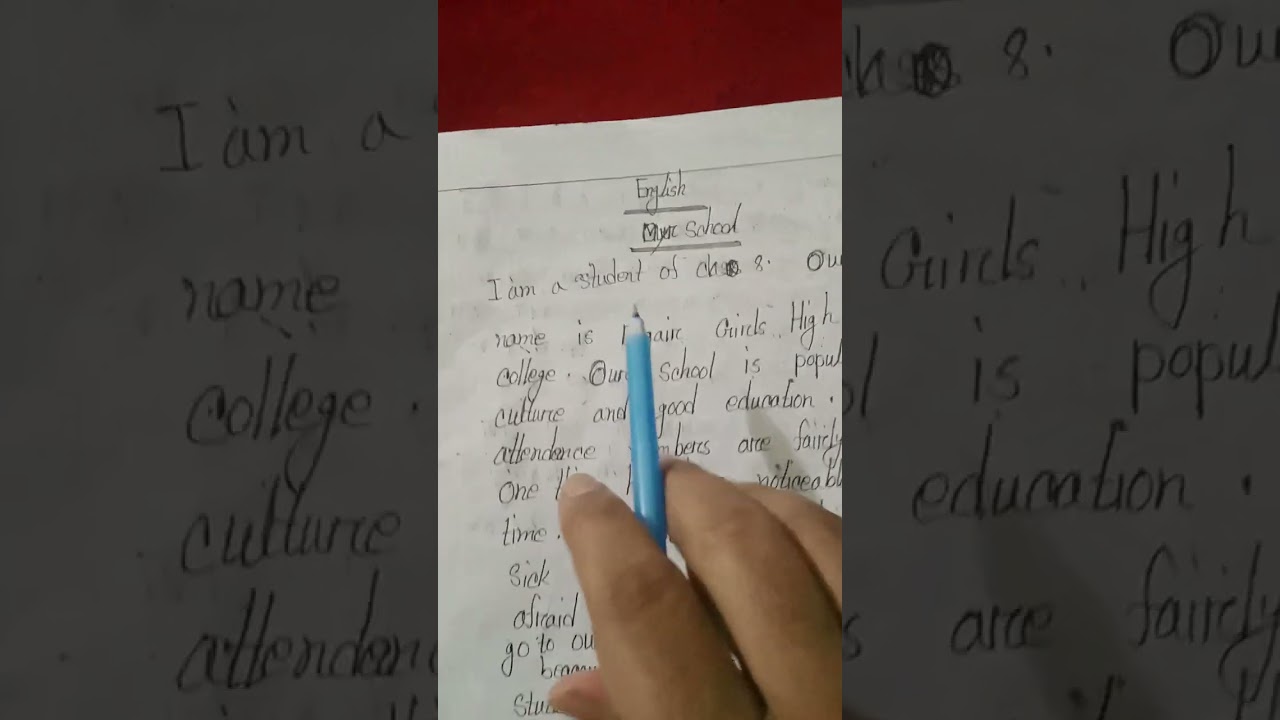 English
My School
I am a student of 8. Our
name is Girls High
college. Our School is popul
culture and good education.
attendence mbers are fairly
One noticeabl
time.
Sick
afraid
go to ou
Stu